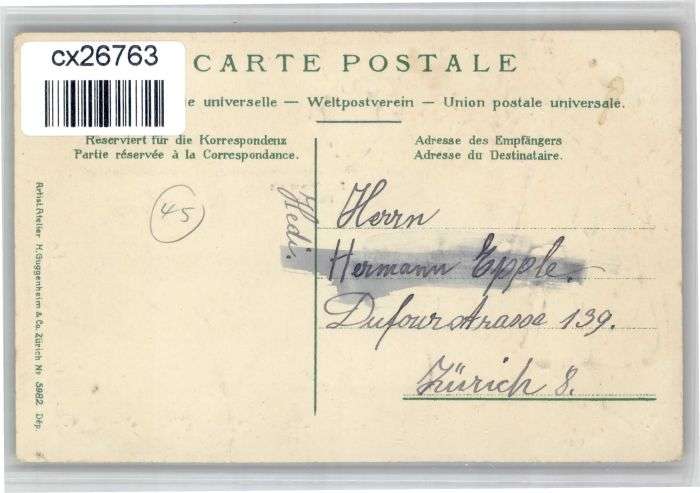 cx26763
CARTE POSTALE
e universelle — Weltpostverein — Union postale universale.
Reserviert für die Korrespondenz
Partie réservée à la Correspondance.
Adresse des Empfängers
Adresse du Destinataire.
45
Hedi.
Herrn
Hermann Epple.
Dufourstrasse 139.
Zürich 8.
Artist. Atelier H. Guggenheim & Co. Zürich No 5982 Dép.